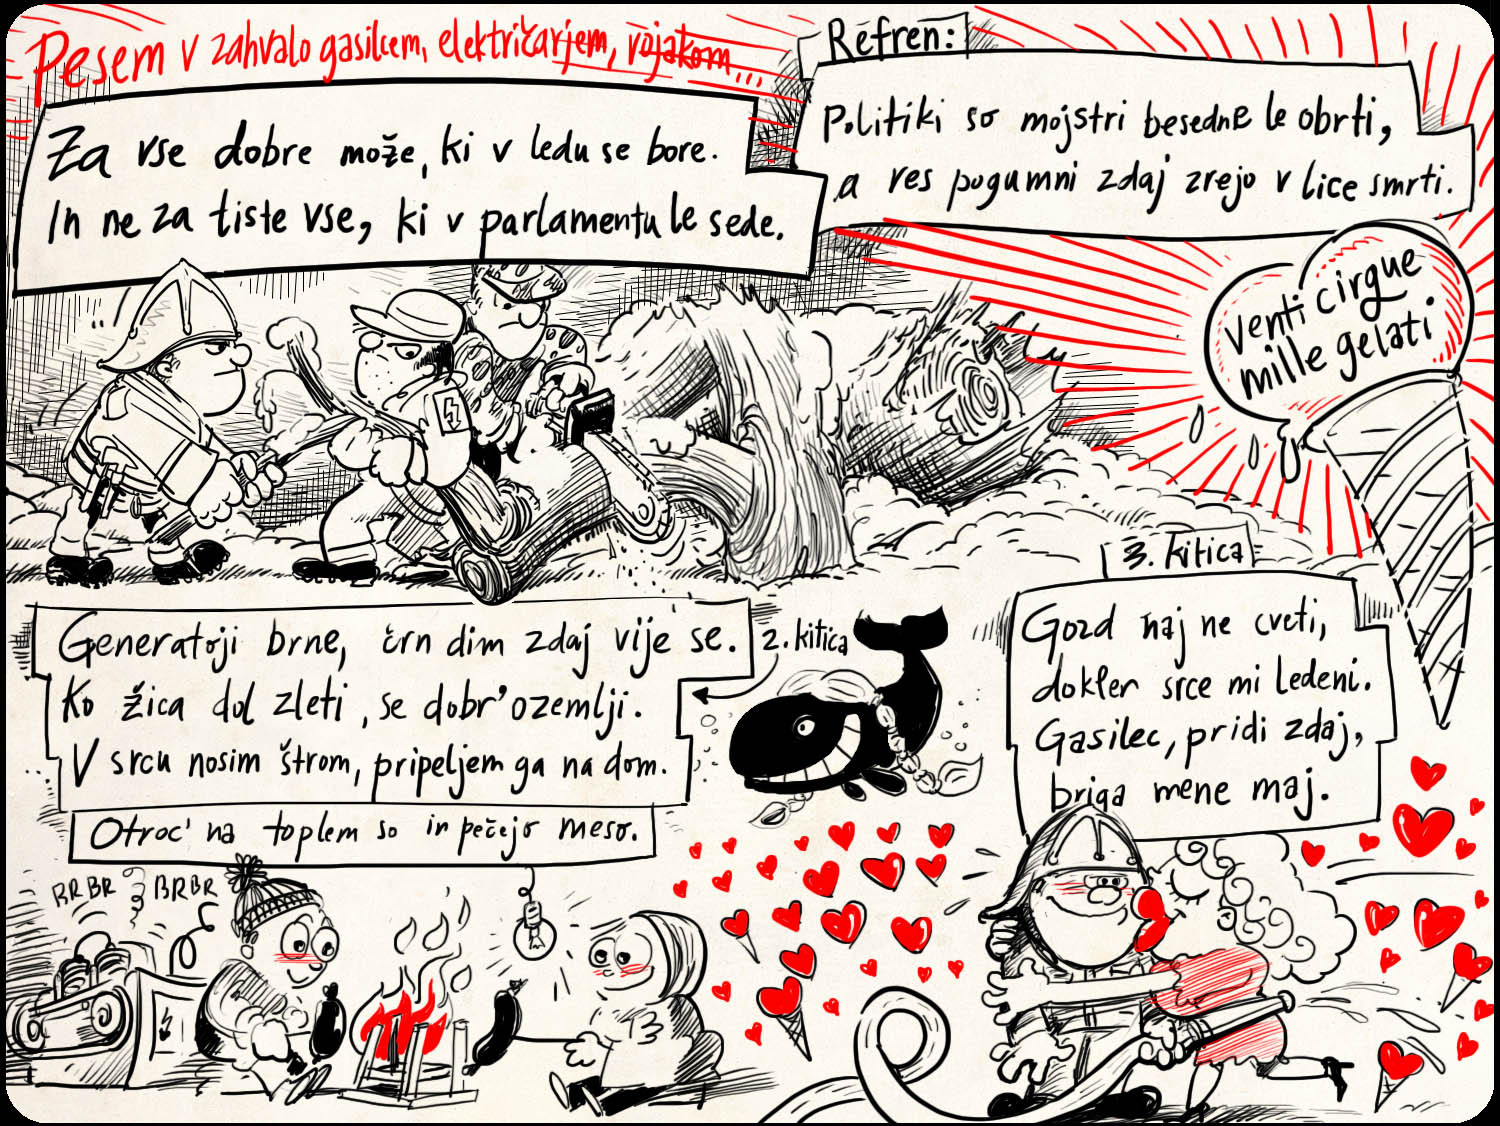 Pesem v zahvalo gasilcem, električarjem, vojakom...
Za vse dobre može, ki v ledu se bore.
In ne za tiste vse, ki v parlamentu le sede.
Refren:
Politiki so mojstri besedne le obrti,
a res pogumni zdaj zrejo v lice smrti.
Venti cirque
mille gelati
2. kitica
Generatoji brne, črn dim zdaj vije se.
Ko žica dol zleti, se dobr' ozemlji.
V srcu nosim štrom, pripeljem ga na dom.
Otroc' na toplem so in pečejo meso.
3. kitica
Gozd naj ne cveti,
dokler srce mi ledeni.
Gasilec, pridi zdaj,
briga mene maj.
BRBR BRBR